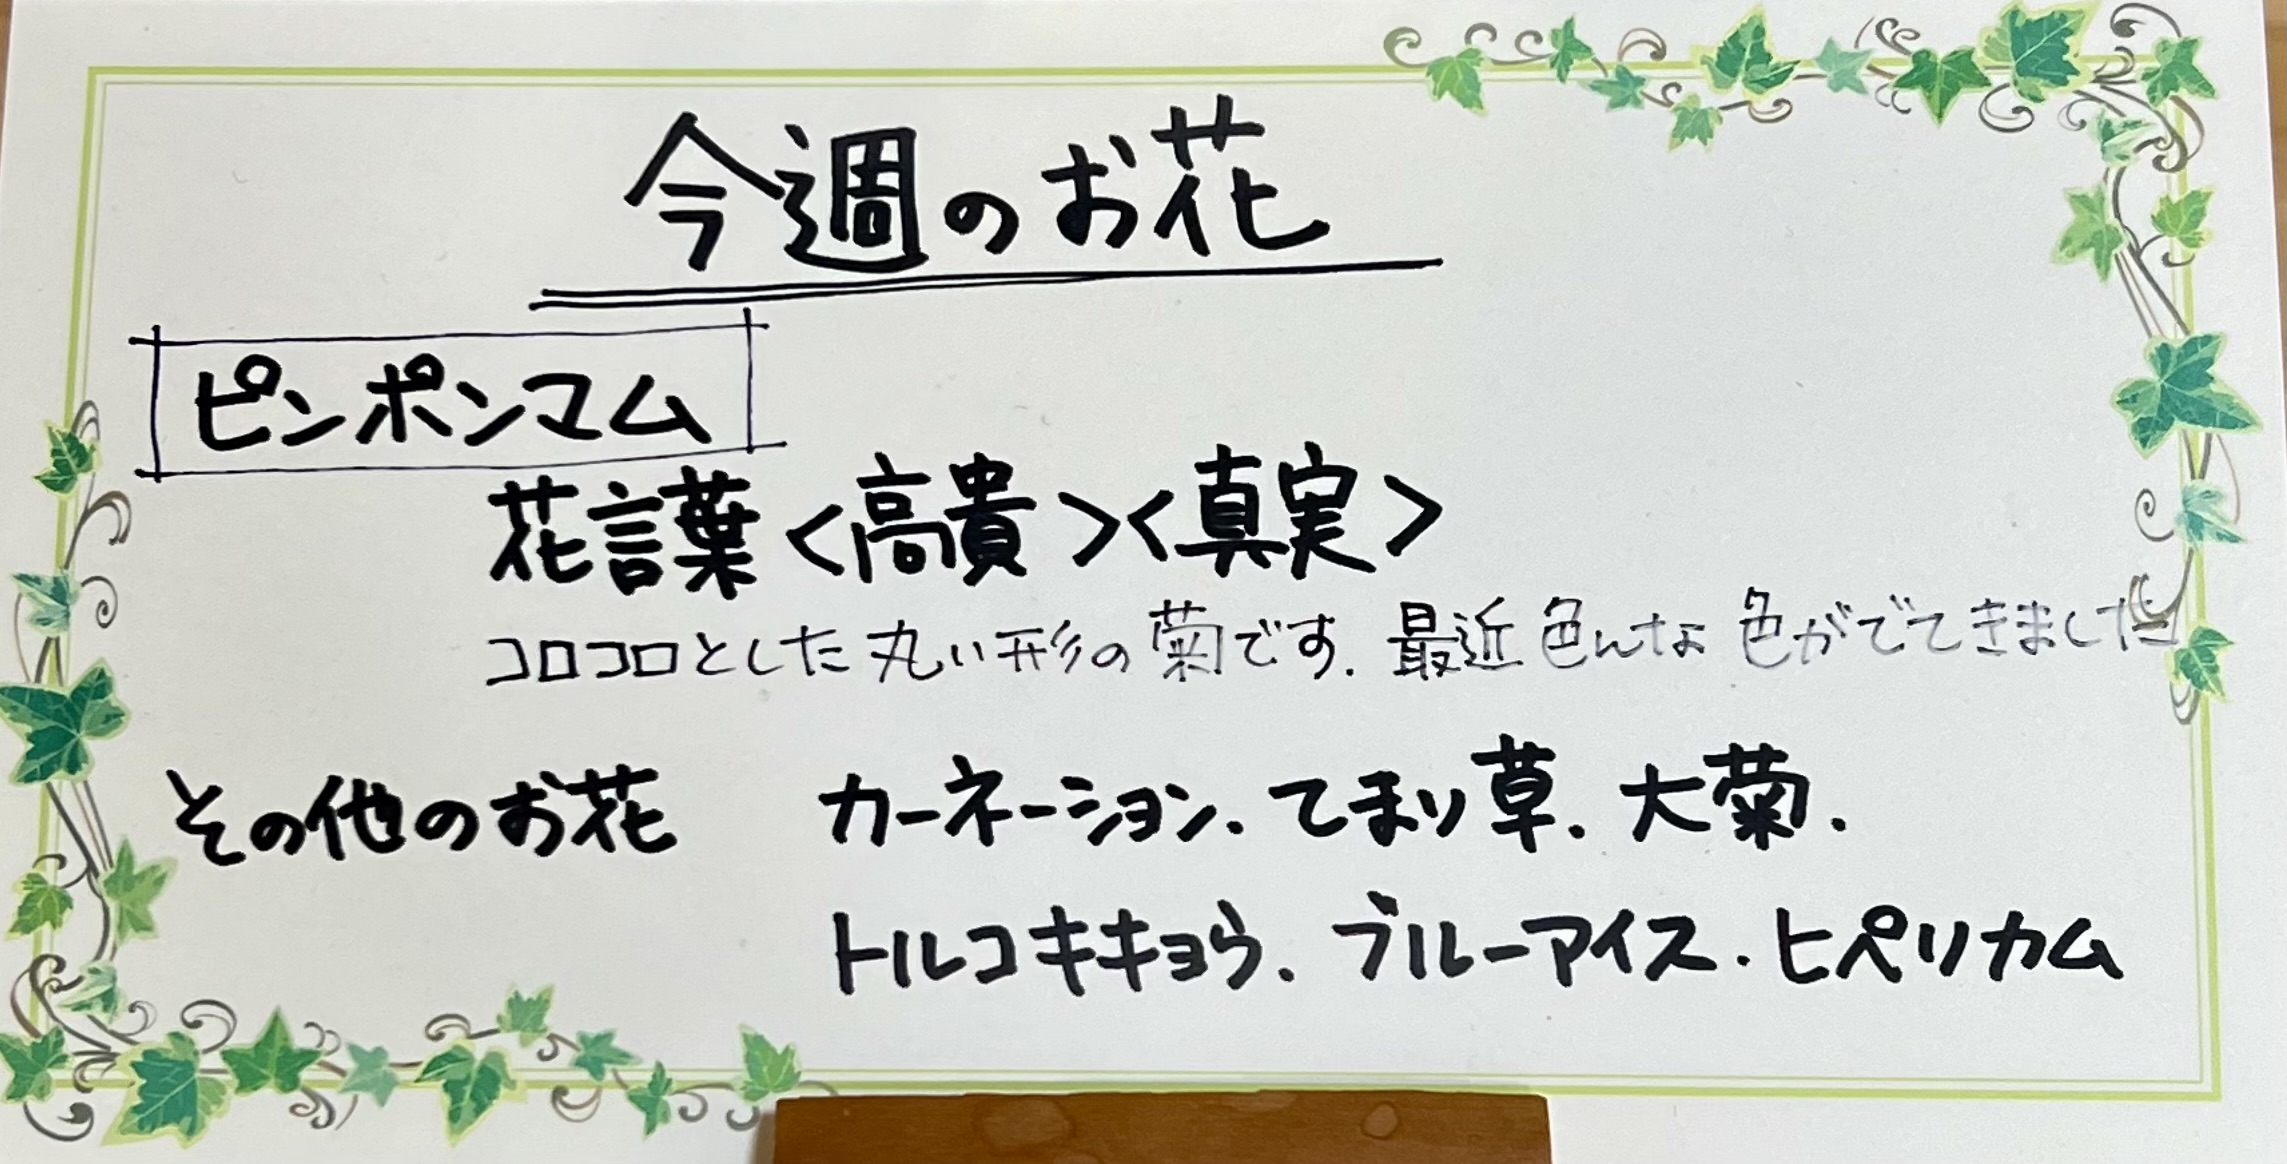 今週のお花
ピンポンマム
花言葉<高貴><真実>
コロコロとした丸い形の菊です.最近色んな色がでてきました
その他のお花 カーネーション.てまり草.大菊.
トルコキキョウ.ブルーアイス.ヒペリカム